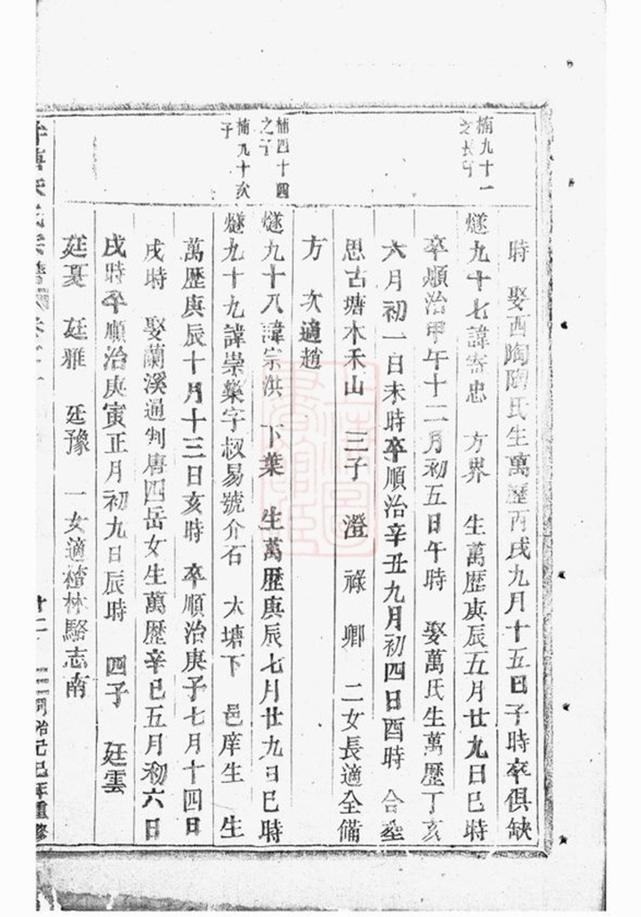 時　娶西陶陶氏生萬歷丙戌九月十五日子時卒俱缺
楠九十一
之長子
燧九十七諱寄忠　方界　生萬歷庚辰五月廿九日巳時
卒順治甲午十二月初五日午時　娶萬氏生萬歷丁亥
六月初一日未時卒順治辛丑九月初四日酉時　合塟
思古塘木禾山　三子　澄　祿　卿　二女長適全備
方　次適趙
楠四十四
之子
燧九十八諱宗洪　下葉　生萬歷庚辰七月廿九日巳時
楠九十次
子
燧九十九諱崇集字叔易號介石　大塘下　邑庠生　生
萬歷庚辰十月十三日亥時　卒順治庚子七月十四日
戌時　娶蘭溪通判唐四岳女生萬歷辛巳五月初六日
戌時卒順治庚寅正月初九日辰時　四子　廷雲
廷夏　廷雅　廷豫　一女適楂林駱志南
廿二
同治己巳年重修